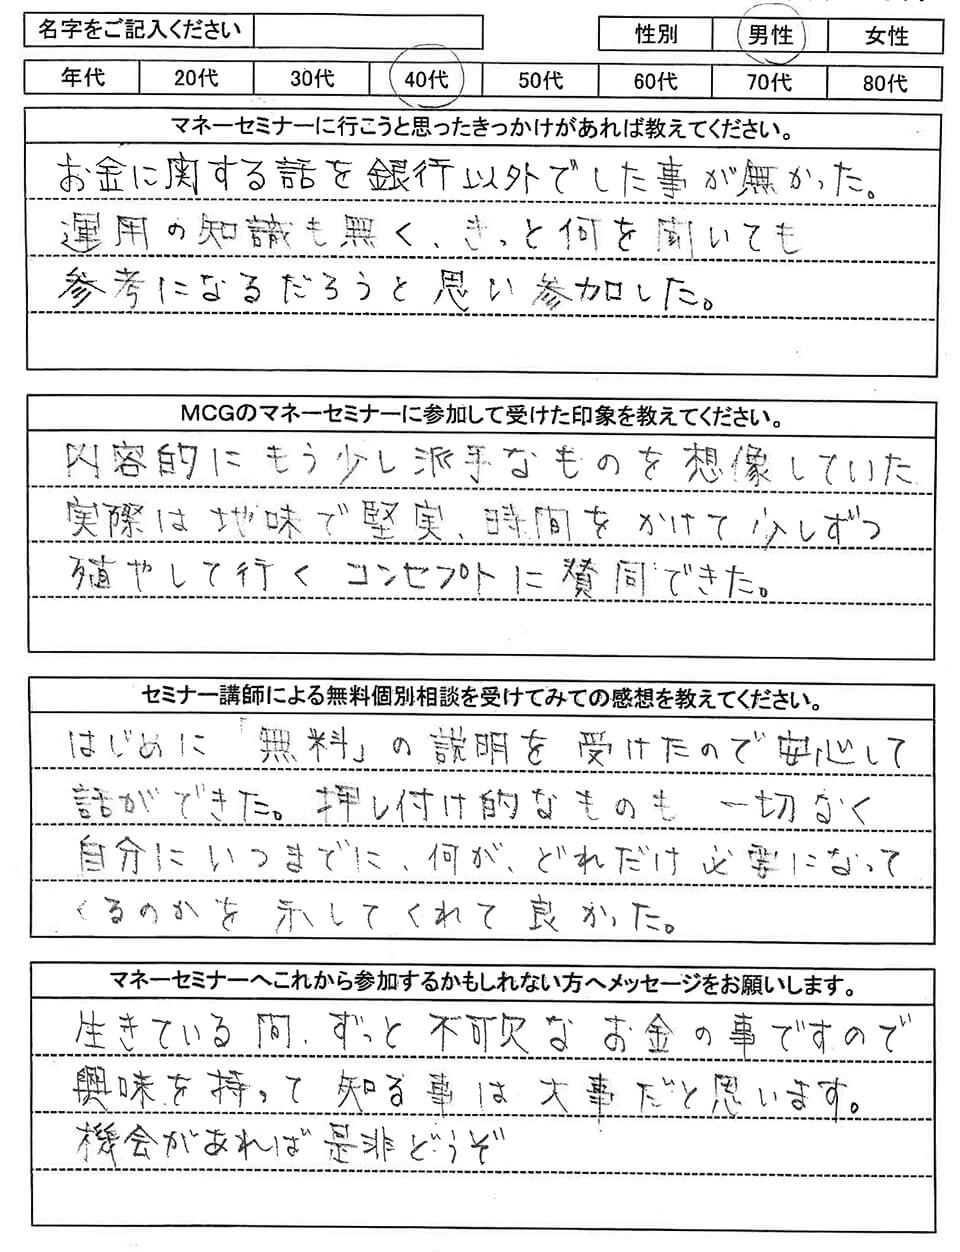 名字をご記入ください
性別 男性 女性
年代 20代 30代 40代 50代 60代 70代 80代
マネーセミナーに行こうと思ったきっかけがあれば教えてください。
お金に関する話を銀行以外でした事が無かった。
運用の知識も無く、きっと何を聞いても
参考になるだろうと思い参加した。
MCGのマネーセミナーに参加して受けた印象を教えてください。
内容的にもう少し派手なものを想像していた
実際は地味で堅実、時間をかけて少しずつ
殖やして行くコンセプトに賛同できた。
セミナー講師による無料個別相談を受けてみての感想を教えてください。
はじめに「無料」の説明を受けたので安心して
話ができた。押し付け的なものも一切なく
自分にいつまでに、何が、どれだけ必要になって
くるのかを示してくれて良かった。
マネーセミナーへこれから参加するかもしれない方へメッセージをお願いします。
生きている間、ずっと不可欠なお金の事ですので
興味を持って知る事は大事だと思います。
機会があれば是非どうぞ